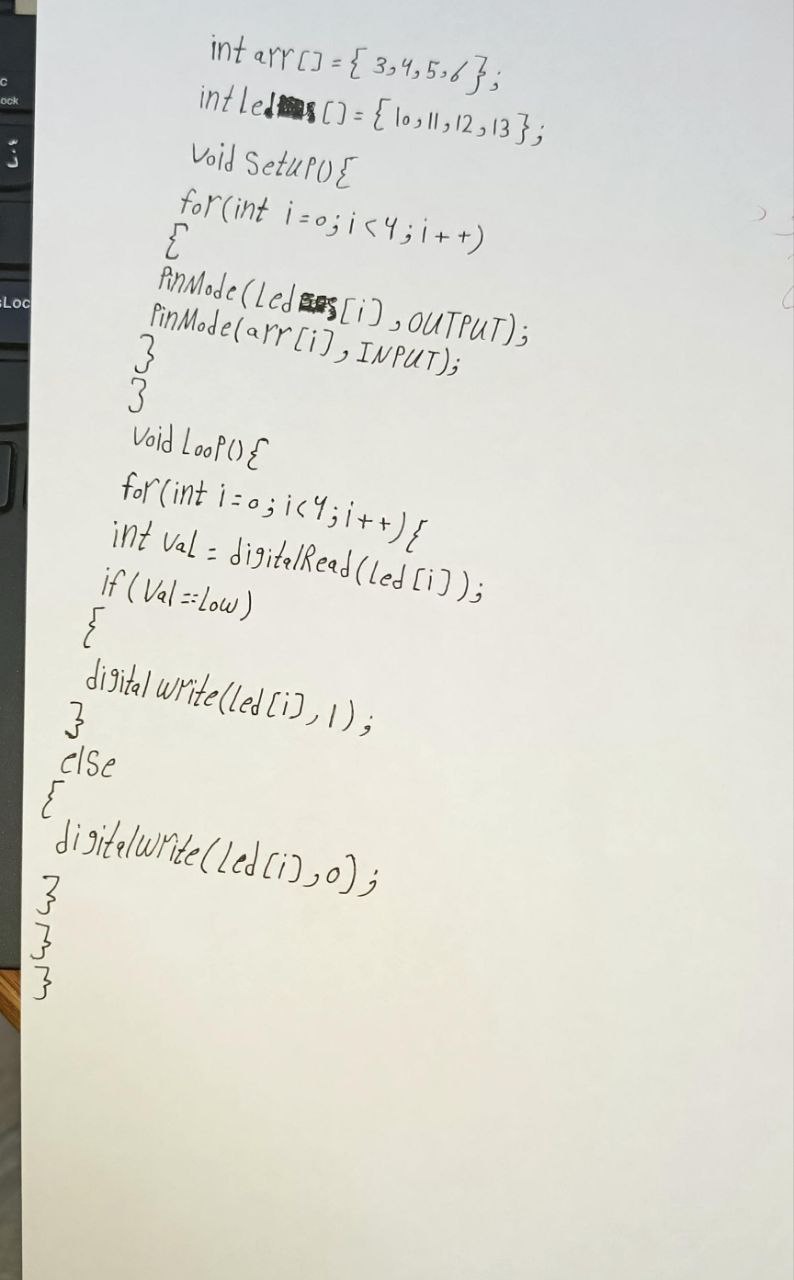 int arr[] = { 3,4,5,6 };
int Led[] = { 10,11,12,13 };
void SetUP(){
for(int i=0; i<4; i++)
{
PinMode(Led[i], OUTPUT);
PinMode(arr[i], INPUT);
}
}
void LooP(){
for(int i=0; i<4; i++){
int Val = digitalRead(led[i]);
if(Val==Low)
{
digital write(led[i], 1);
}
else
{
digitalwrite(led[i], 0);
}
}
}
c
ock
sLoc